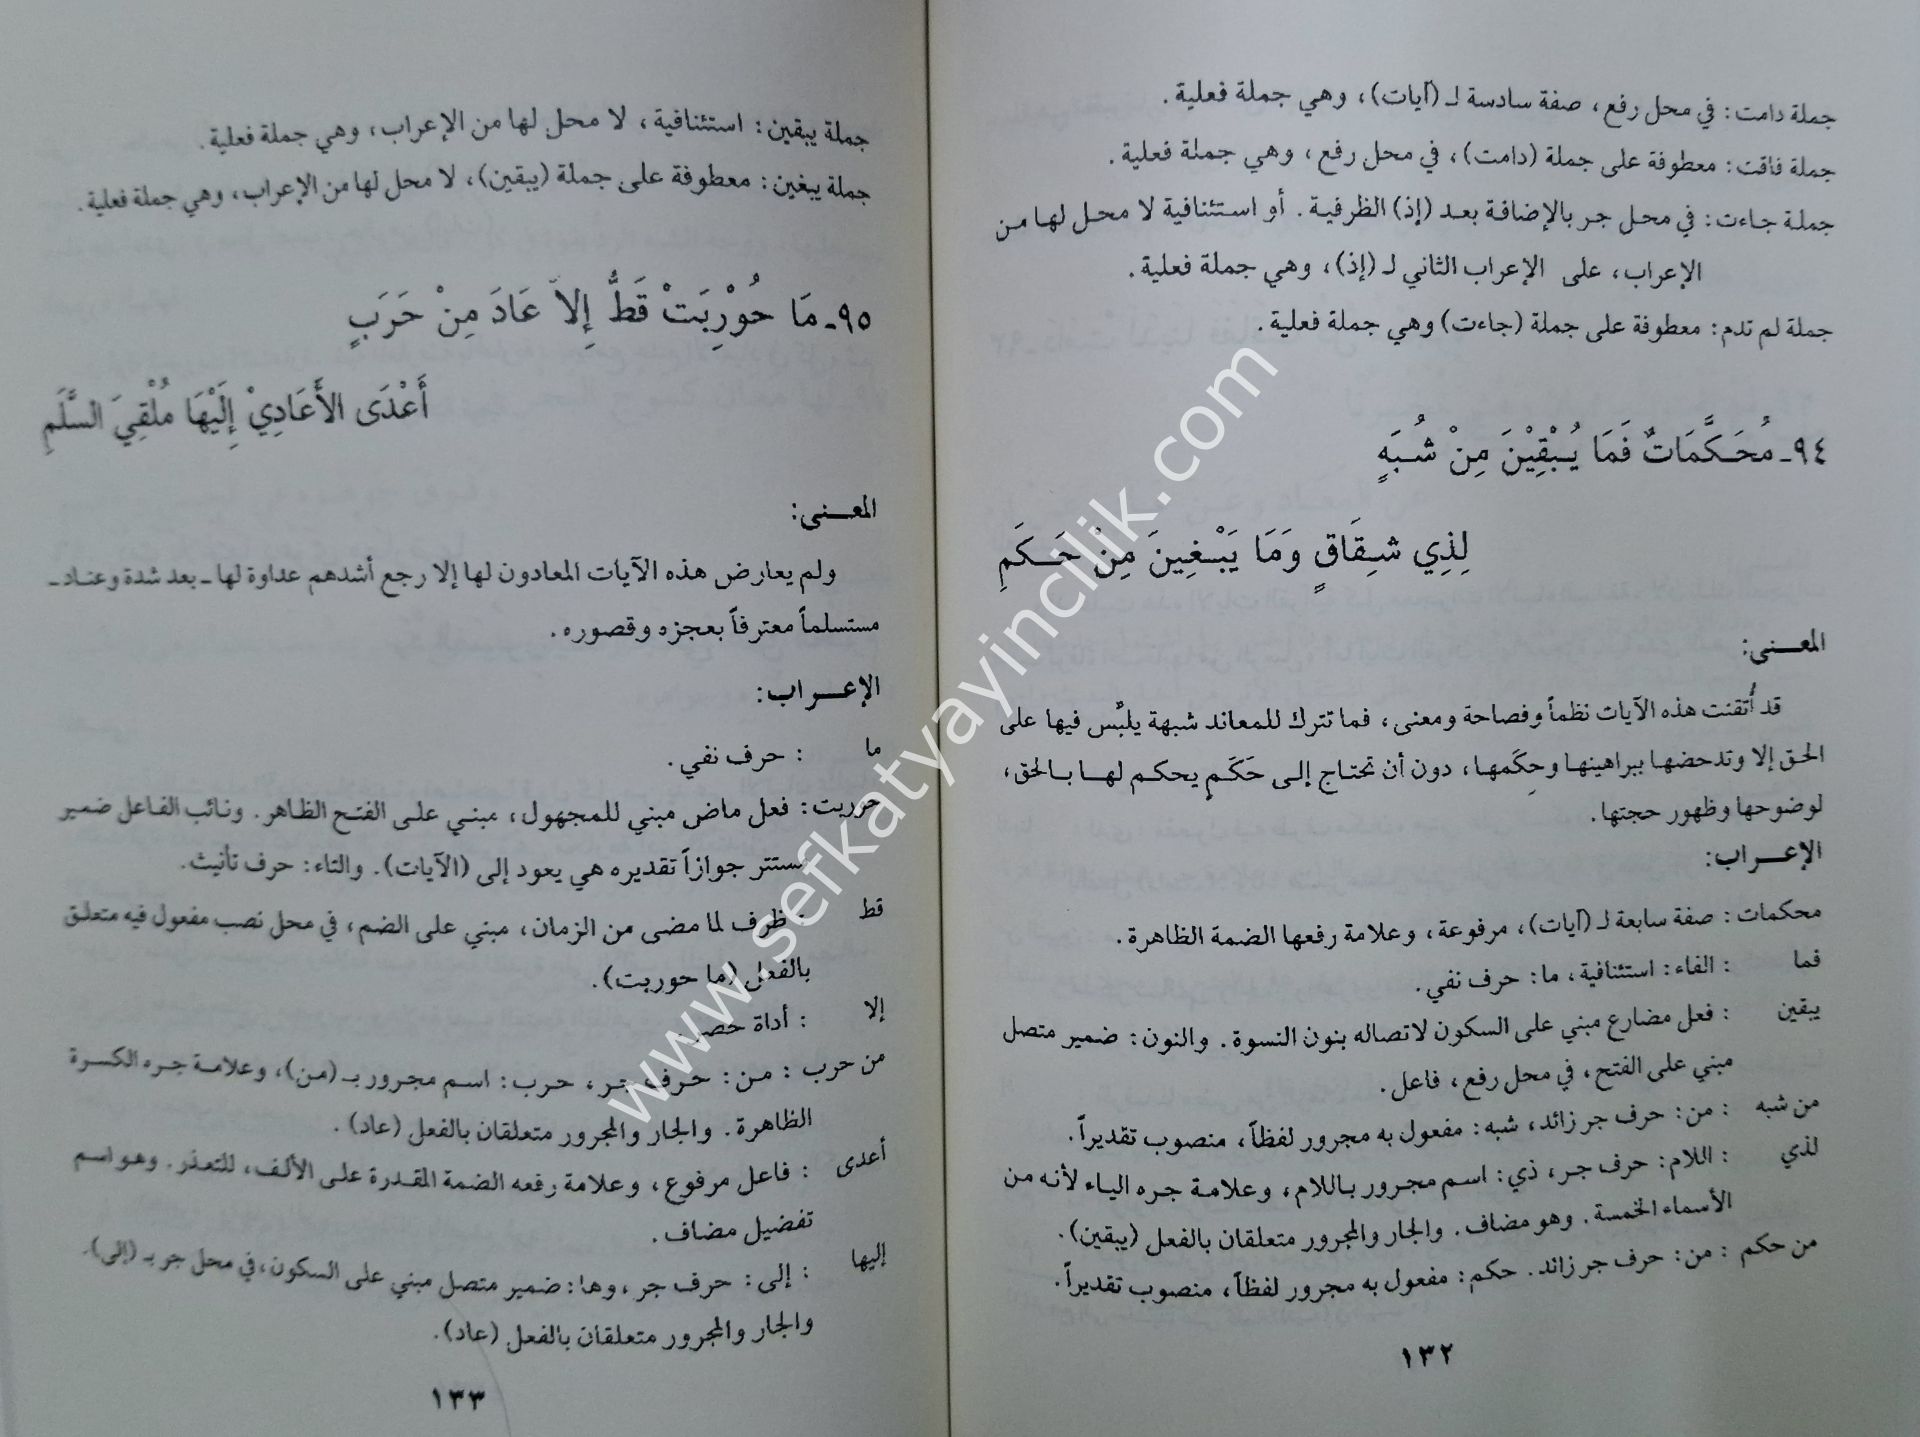 جملة دامت: في محل رفع، صفة سادسة لـ (آيات)، وهي جملة فعلية.
جملة فاقت: معطوفة على جملة (دامت)، في محل رفع، وهي جملة فعلية.
جملة جاءت: في محل جر بالإضافة بعد (إذ) الظرفية. أو استئنافية لا محل لها من
الإعراب، على الإعراب الثاني لـ (إذ)، وهي جملة فعلية.
جملة لم تدم: معطوفة على جملة (جاءت) وهي جملة فعلية.
٩٤ـ مُحَكَّمَاتٌ فَمَا يُبْقِيْنَ مِنْ شُبَهٍ
لِذِي شِقَاقٍ وَمَا يَبْغِينَ مِنْ حَكَمِ
المعنى:
قد أُتقنت هذه الآيات نظماً وفصاحة ومعنى، فما تترك للمعاند شبهة يلبِّس فيها على
الحق إلا وتدحضها ببراهينها وحِكَمها، دون أن تحتاج إلى حَكَمٍ يحكم لها بالحق،
لوضوحها وظهور حجتها.
الإعراب:
محكمات: صفة سابعة لـ (آيات)، مرفوعة، وعلامة رفعها الضمة الظاهرة.
فما : الفاء: استئنافية، ما: حرف نفي.
يبقين : فعل مضارع مبني على السكون لاتصاله بنون النسوة. والنون: ضمير متصل
مبني على الفتح، في محل رفع، فاعل.
من شبه : من: حرف جر زائد، شبه: مفعول به مجرور لفظاً، منصوب تقديراً.
لذي : اللام: حرف جر، ذي: اسم مجرور باللام، وعلامة جره الياء لأنه من
الأسماء الخمسة. وهو مضاف. والجار والمجرور متعلقان بالفعل (يبقين).
من حكم : من: حرف جر زائد. حكم: مفعول به مجرور لفظاً، منصوب تقديراً.
١٣٢
جملة يبقين: استئنافية، لا محل لها من الإعراب، وهي جملة فعلية.
جملة يبغين: معطوفة على جملة (يبقين)، لا محل لها من الإعراب، وهي جملة فعلية.
٩٥ـ مَا حُوْرِبَتْ قَطُّ إِلاَّ عَادَ مِنْ حَرَبٍ
أَعْدَى الأَعَادِيْ إِلَيْهَا مُلْقِيَ السَّلَمِ
المعنى:
ولم يعارض هذه الآيات المعادون لها إلا رجع أشدهم عداوة لها ـ بعد شدة وعناد ـ
مستسلماً معترفاً بعجزه وقصوره.
الإعراب:
ما : حرف نفي.
حوربت: فعل ماض مبني للمجهول، مبني على الفتح الظاهر. ونائب الفاعل ضمير
مستتر جوازاً تقديره هي يعود إلى (الآيات). والتاء: حرف تأنيث.
قط : ظرف لما مضى من الزمان، مبني على الضم، في محل نصب مفعول فيه متعلق
بالفعل (ما حوربت).
إلا : أداة حصر.
من حرب : من: حرف جر، حرب: اسم مجرور بـ (من)، وعلامة جره الكسرة
الظاهرة. والجار والمجرور متعلقان بالفعل (عاد).
أعدى : فاعل مرفوع، وعلامة رفعه الضمة المقدرة على الألف، للتعذر. وهو اسم
تفضيل مضاف.
إليها : إلى: حرف جر، وها: ضمير متصل مبني على السكون، في محل جر بـ (إلى).
والجار والمجرور متعلقان بالفعل (عاد).
١٣٣
www.sefkatyayincilik.com